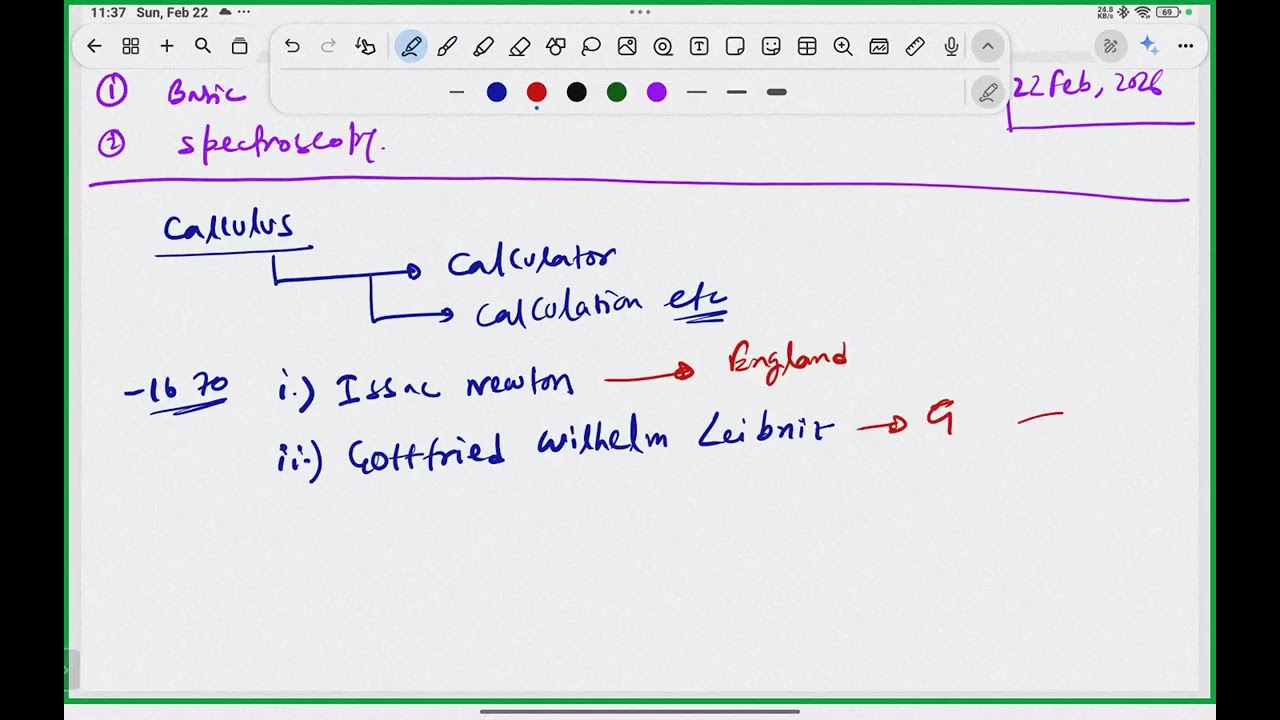 11:37 Sun, Feb 22
24.8 KB/s 69
① Basic
22 Feb, 2026
② Spectroscopy.
Calculus
Calculator
Calculation etc
~1670 i.) Issac Newton → England
ii.) Gottfried Wilhelm Leibniz → G